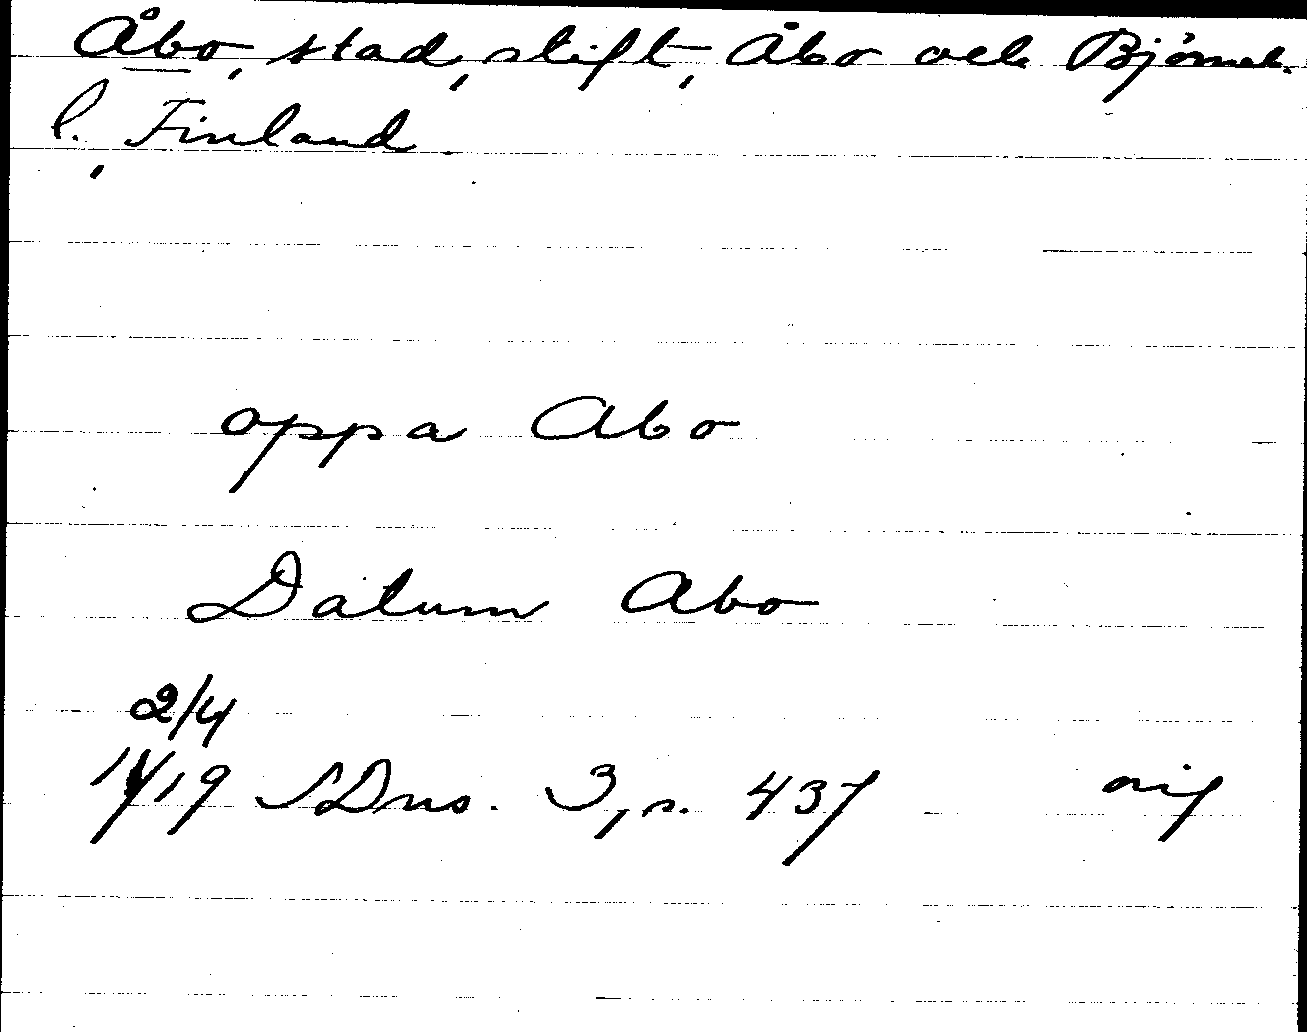 Åbo, stad, stift, Åbo och Björneb.
l., Finland.
oppa Abo
Datum Abo
2/4
1419 SDns. 3, s. 437 orig